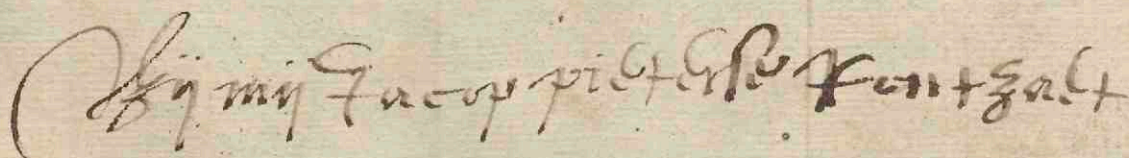 Bij mij Jacop pieterse kontzaet